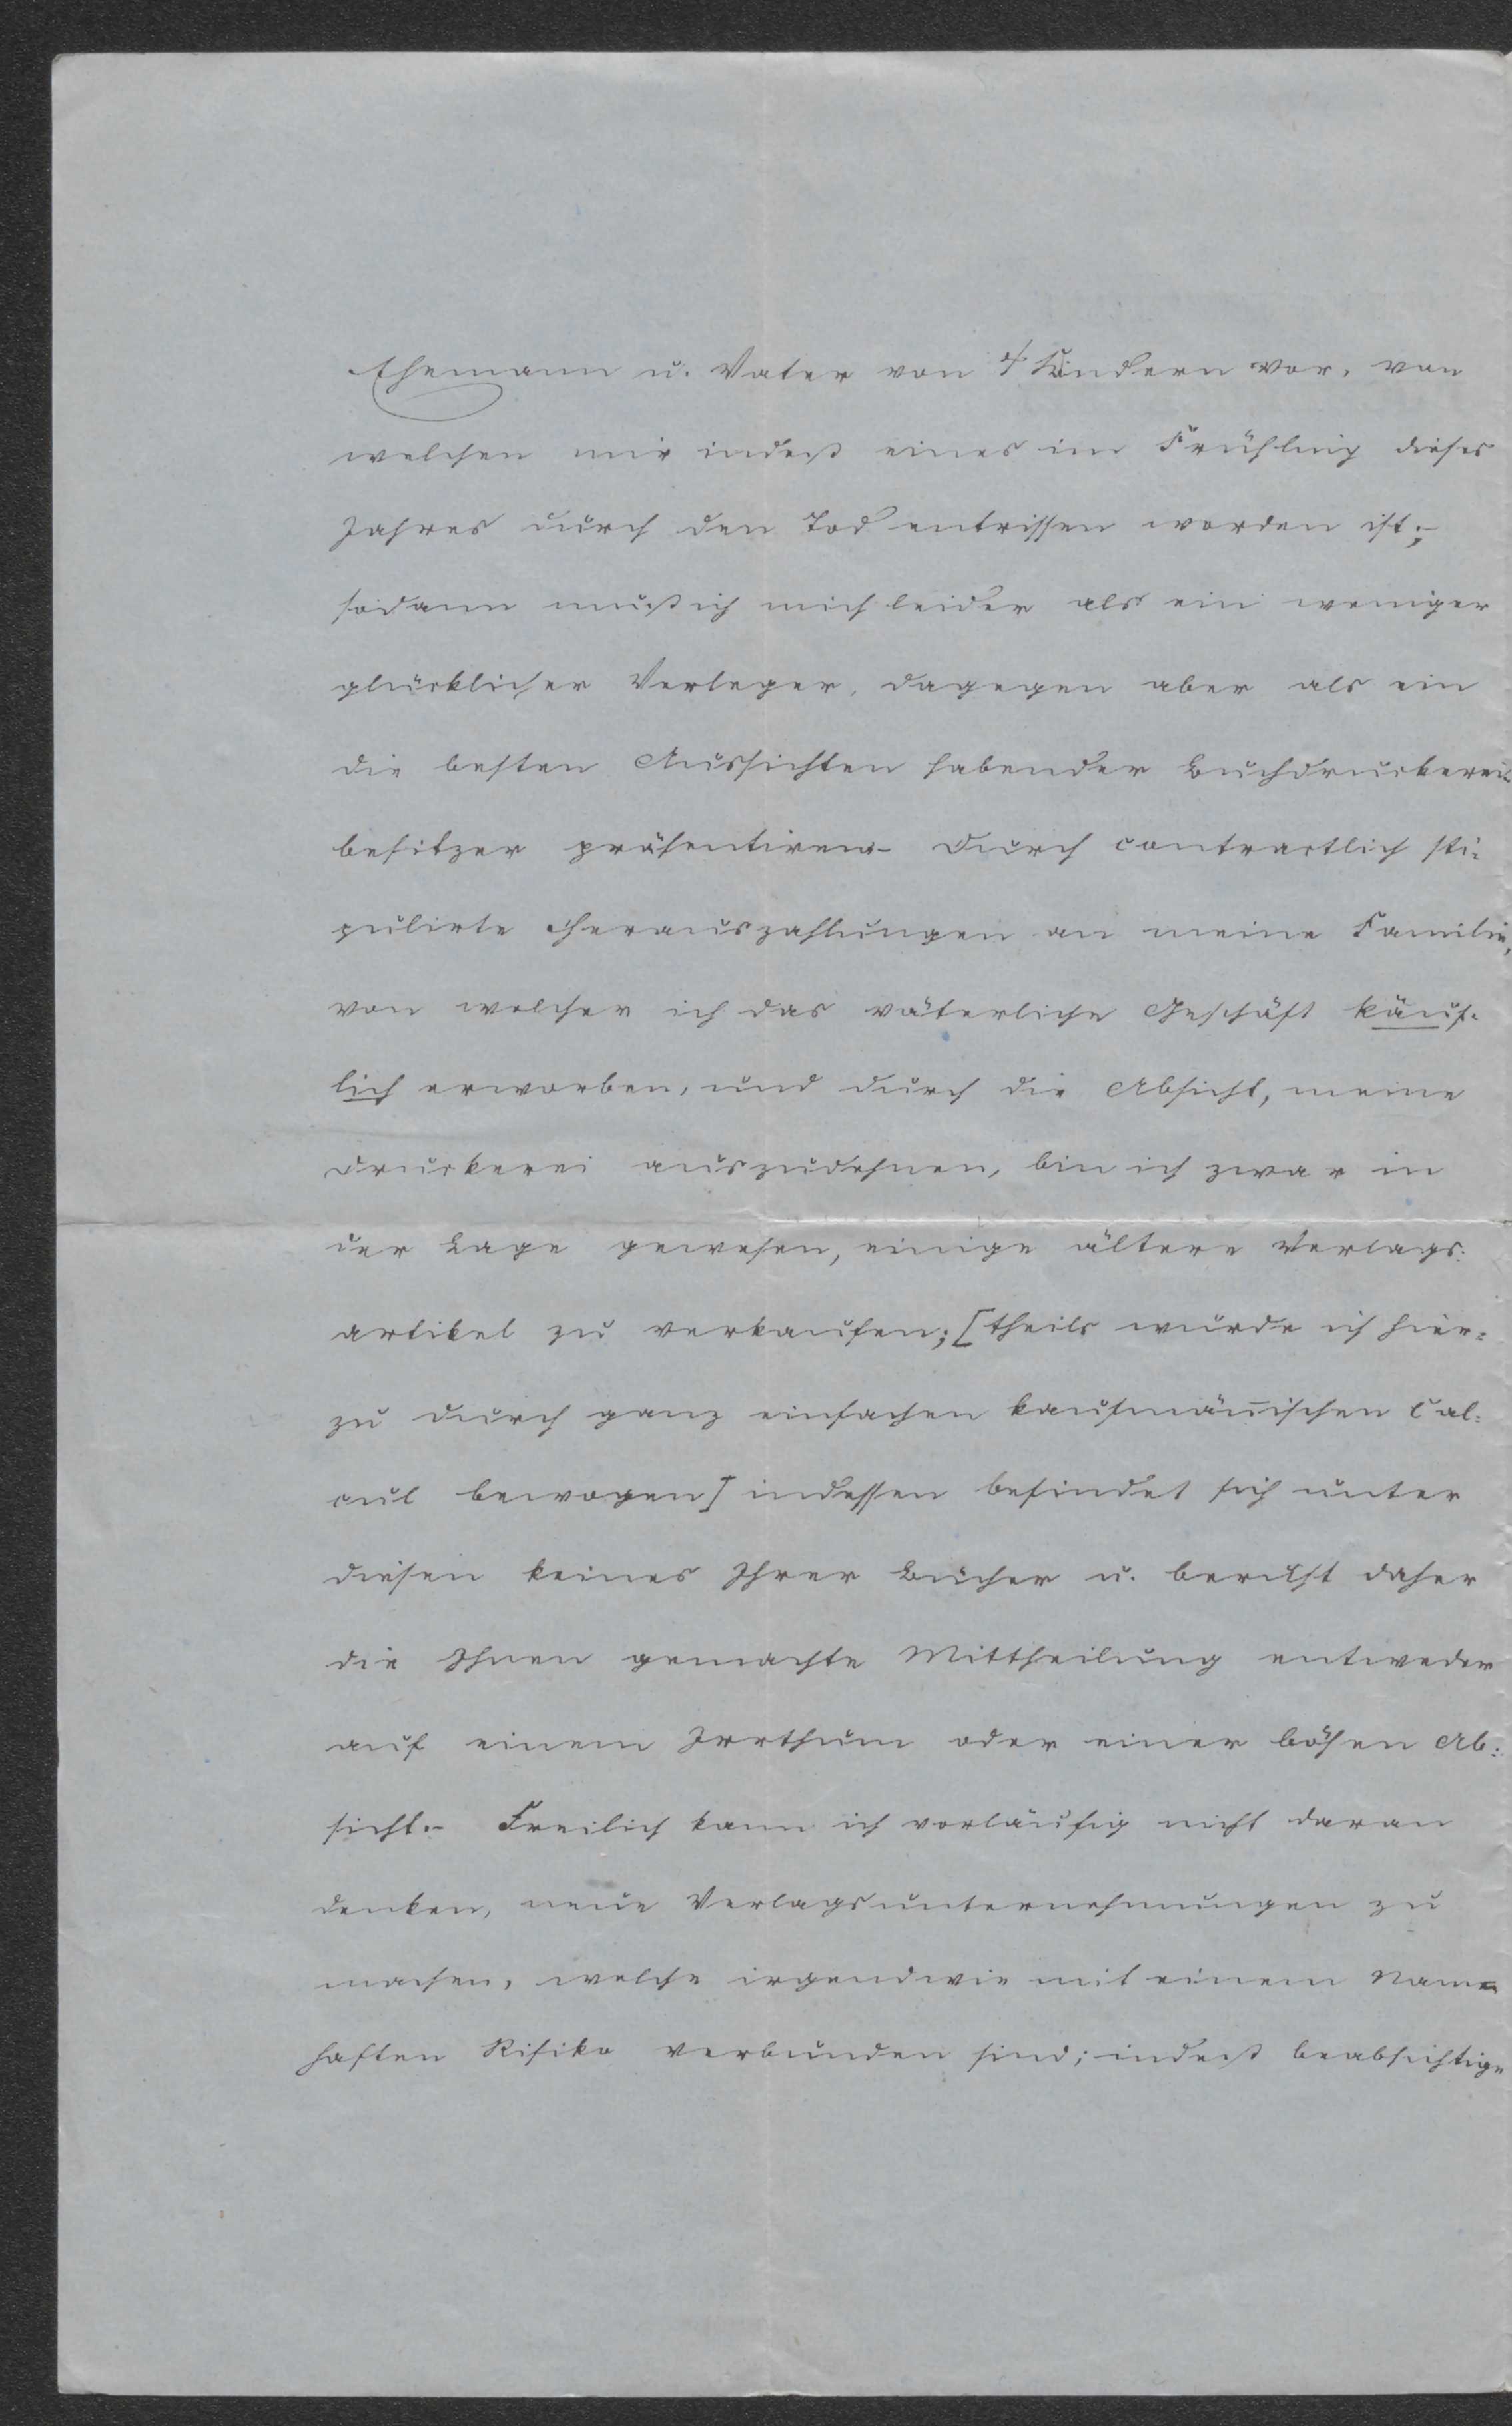 Ehemann u. Vater von 4 Kindern vor, von
welchen mir indeß eines im Frühling dieses
Jahres durch den Tod entrissen worden ist;
sodann muß ich mich leider als ein weniger
glücklicher Verleger, dagegen aber als ein
die besten Aussichten habender Buchdruckerei-
besitzer präsentiren. Durch contractlich sti-
pulirte Herauszahlungen an meine Familie,
von welcher ich das väterliche Geschäft käuf-
lich erworben, und durch die Absicht, meine
Druckerei auszudehnen, bin ich zwar in
der Lage gewesen, einige ältere Verlags-
artikel zu verkaufen; [theils wurde ich hier-
zu durch ganz einfachen kaufmänischen Cal-
cul bewogen] indessen befindet sich unter
diesen keines Ihrer Bücher u. beruht daher
die Ihnen gemachte Mittheilung entweder
auf einem Irrthum oder einer bösen Ab-
sicht.- Freilich kann ich vorläufig nicht daran
denken, neue Verlagsunternehmungen zu
machen, welche irgendwie mit einem Namen
haften Risiko verbunden sind; indeß beabsichtige